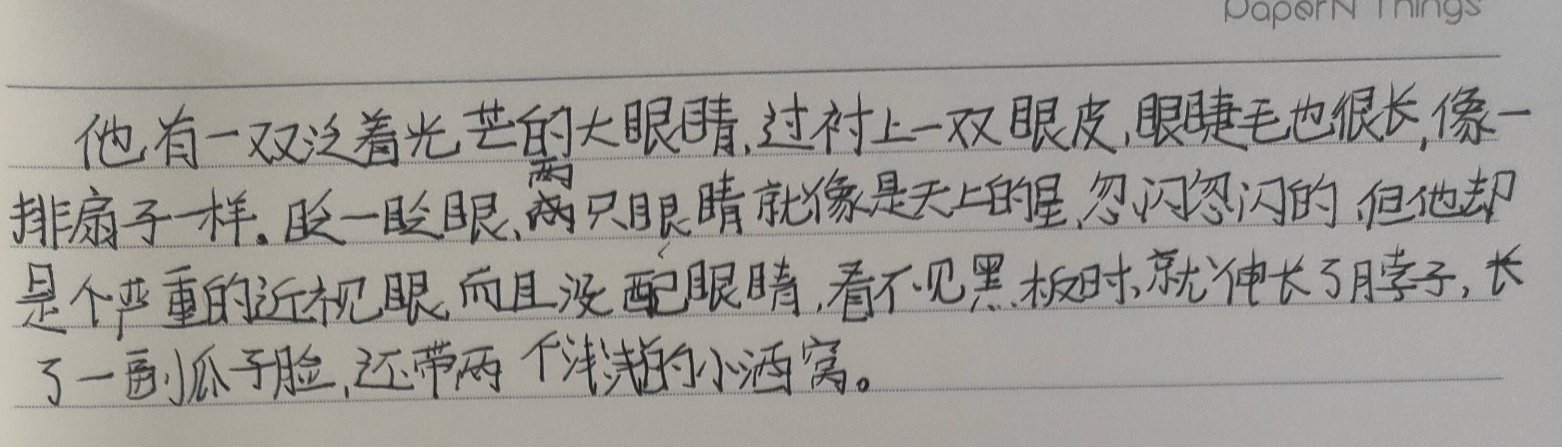 PaperN Things
他有一双泛着光芒的大眼睛,过衬上一双眼皮,眼睫毛也很长,像一
排扇子一样。眨一眨眼,两只眼睛就像是天上的星,忽闪忽闪的,但他却
是个严重的近视眼,而且没配眼睛,看不见黑板时,就伸长了脖子,长
了一副瓜子脸,还带两个浅浅的小酒窝。